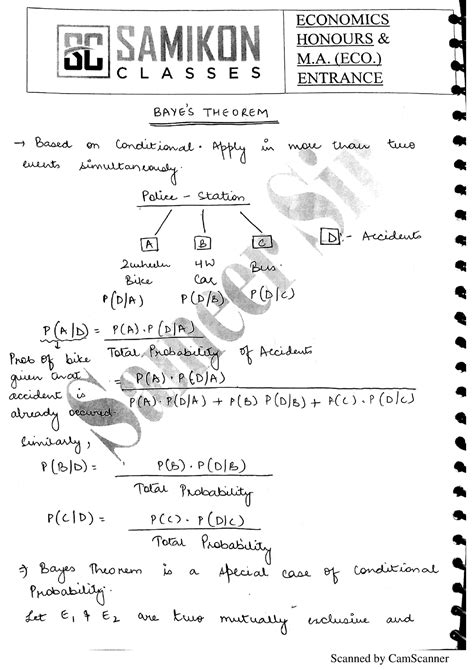 SC SAMIKON
CLASSES
ECONOMICS
HONOURS &
M.A. (ECO.)
ENTRANCE
BAYE'S THEOREM
→ Based on Conditional. Apply in more than two
events simultaneously.
Police - Station
A B C D :- Accidents
2wheeler 4W Bus
Bike Car
P(D/A) P(D/B) P(D/C)
P(A/D) = P(A).P(D/A)
Total Probability of Accidents
Prob of bike
given that
accident is
already occured.
= P(A).P(D/A)
P(A).P(D/A) + P(B) P(D/B) + P(C).P(D/C)
Similarly,
P(B/D) = P(B).P(D/B)
Total Probability
P(C/D) = P(C).P(D/C)
Total Probability
⇒ Bayes Theorem is a special case of conditional
Probability.
Let E1 & E2 are two mutually exclusive and
Sameer Sir
Scanned by CamScanner